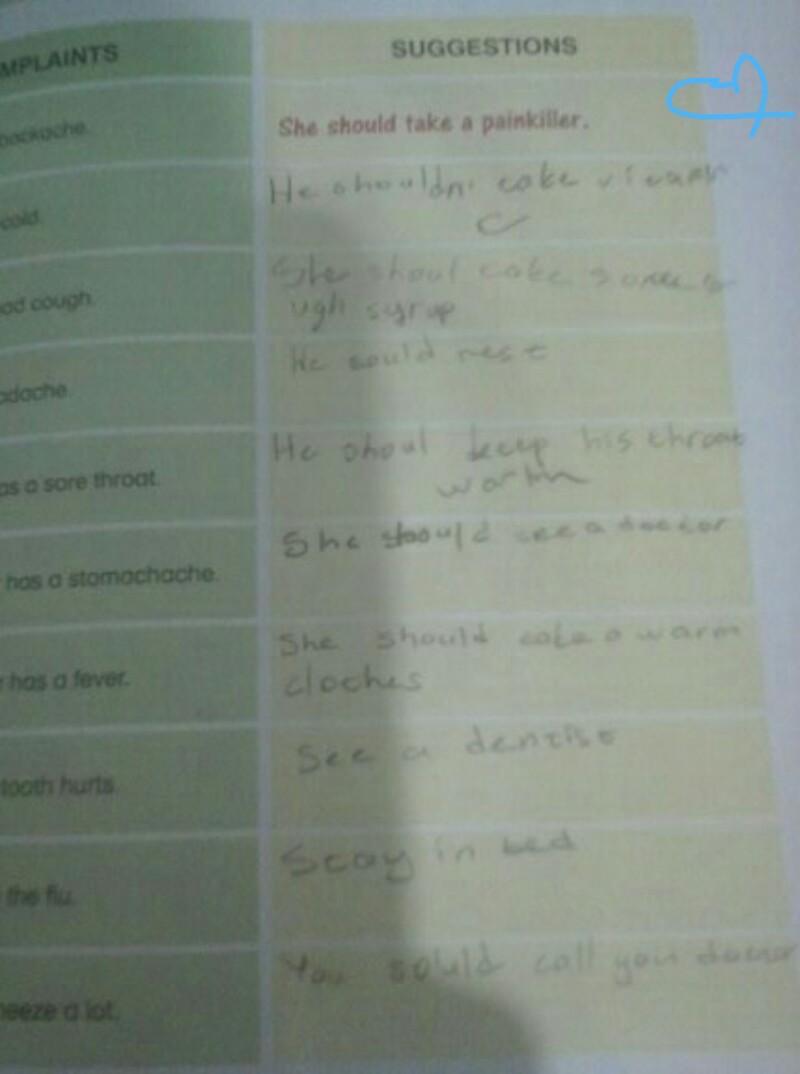 MPLAINTS SUGGESTIONS
backache. She should take a painkiller.
cold. He shouldn
C
ad cough. She shoul cake some
ugh syrup
adache. He sould rest
as a sore throat. He shoul keep his throat
warm
has a stomachache. She should see a doctor
has a fever. She should cake a warm
cloches
tooth hurts. See a dentist
the flu. Stay in bed
neeze a lot. You sould call your